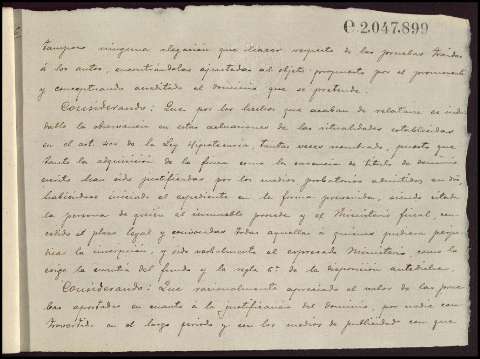 C 2.047.899
tampoco ninguna alegación que hacer respecto de las pruebas traidas
á los autos, encontrándolas ajustadas al objeto propuesto por el promovente
y conceptuando acreditado el dominio que se pretende.
Considerando: Que por los hechos que acaban de relatarse es indu
dable la observancia en estas actuaciones de las ritualidades establecidas
en el art. 400 de la Ley Hipotecaria, tantas veces nombrado, puesto que
tanto la adquisición de la finca como la carencia de título de dominio
escrito han sido justificadas por los medios probatorios admitidos en dro,
habiéndose iniciado el expediente en la forma prevenida, siendo citada
la persona de quien el inmueble procede y el Ministerio fiscal, con
cedido el plazo legal y convocadas todas aquellas á quienes pudiera perju
dicar la inscripción, y oido verbalmente al expresado Ministerio como lo
exige la cuantía del fundo y la regla 5ª de la disposición antedicha.
Considerando: Que racionalmente apreciado el valor de las prue
bas aportadas en cuanto á la justificación del dominio, por nadie con
trovertido en el largo periodo y con los medios de publicidad con que